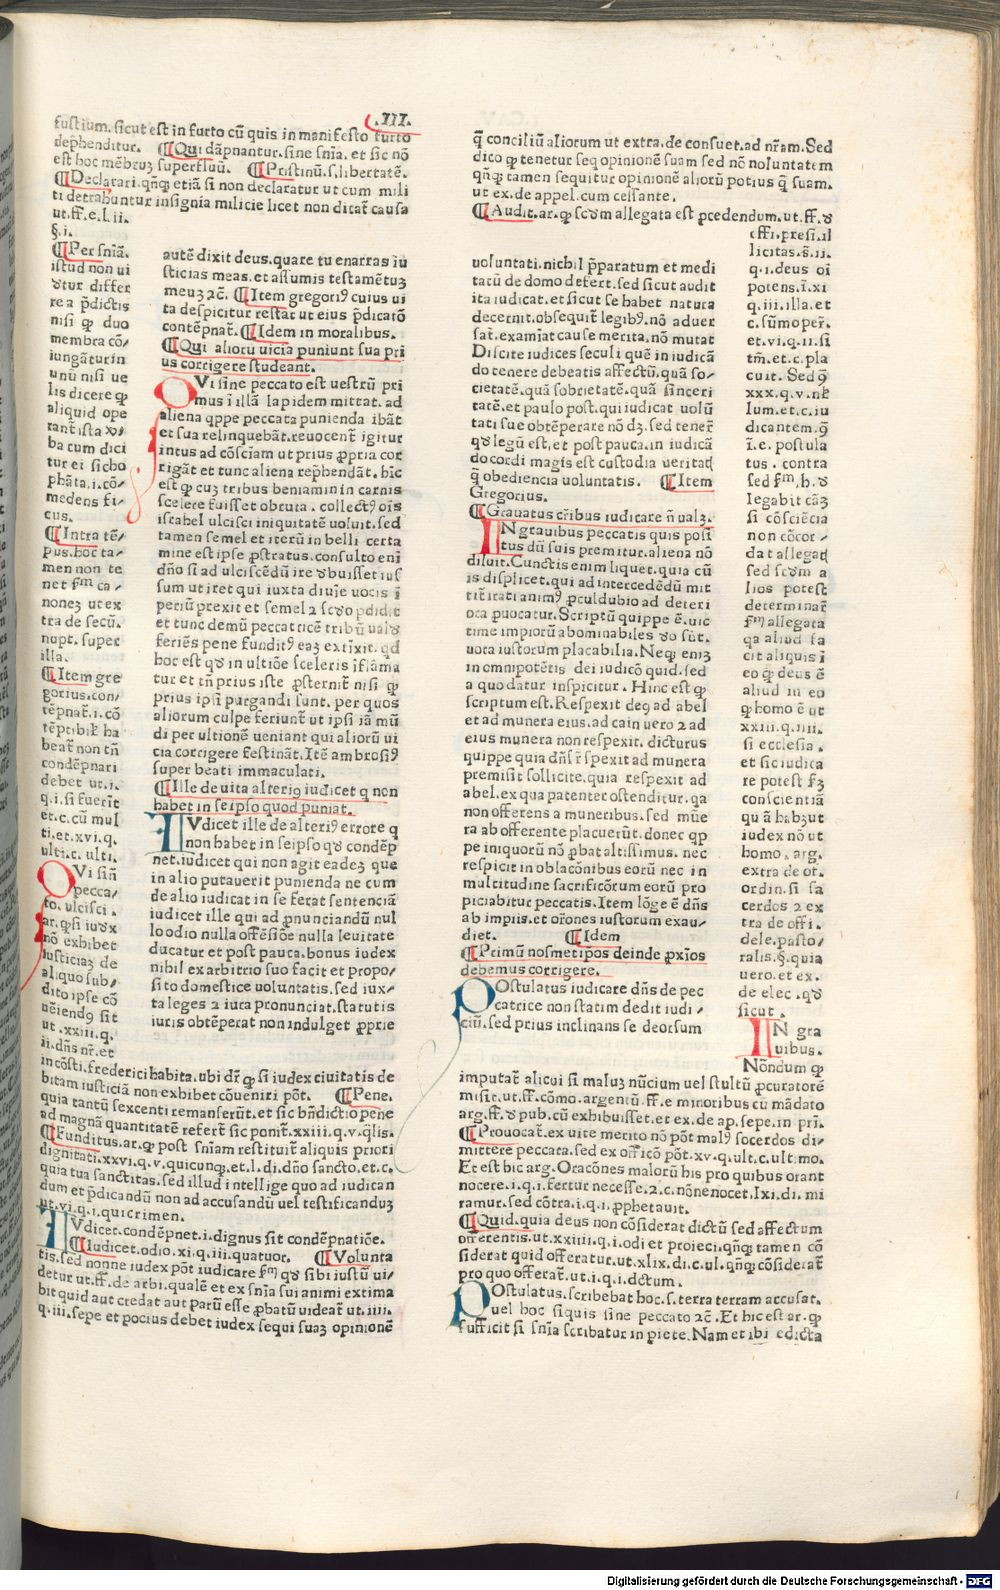 .III.
fustium. sicut est in furto cū quis in manifesto furto
dep̄henditur. ¶Qui dāpnantur. sine sn̄ia. et sic nō
est hoc mēbruꝫ superfluū. ¶Pristinū. s. libertatē.
¶Declarari. qn̄qꝫ etiā si non declaratur ut cum mili
ti detrahuntur insignia milicie licet non dicat̄ causa
ut. ff. e. l. ii.
§. i.
¶Per sn̄iā.
istud non ui
detur differ
re a p̄dictis
nisi ꝙ duo
membra cō/
iungātur in
unū nisi ue
lis dicere ꝙ
aliquid ope
rant̄ ista
ba cum dici
tur ei sicho
phāta. i. cō/
medens fi-
cus.
¶Intra tē/
pus. hoc ta-
men non te
net fm̄ ca-
nones ut ex
tra de secū.
nupt. super
illa.
¶Item gre
gorius. con/
tēpnat̄. i. cō
tēptibil̄ ha
beat̄ non tn̄
condēpnari
debet ut. i.
q. i. si fuerīt
et. c. cū mul
ti. et. xvi. q.
ulti. c. ulti.
QVi sin̄
pecca/
to. ulcisci.
ar. ꝙ si iudex
nō exhibet
iusticiaꝫ de
aliquo sub/
dito ipse cō
ueniendꝰ sit
ut. xxiii. q.
ii. dn̄s nr̄. et
autē dixit deus. quare tu enarras iu
sticias meas. et assumis testamētuꝫ
meuꝫ ⁊c̄. ¶Item gregoriꝰ cuius ui
ta despicitur restat̄ ut eius p̄dicatō
contēpnat̄. ¶Idem in moralibus.
¶Qui alioꝝ uicia puniunt sua pri
us corrigere studeant.
QVi sine peccato est uestrū pri
mus ī illā lapidem mittat. ad
aliena qppe peccata punienda ibāt
et sua relinquebāt. reuocent̄ igitur
intus ad cōsciam ut prius ꝓpria cor
rigāt et tunc aliena rep̄hendāt. hīc
est ꝙ cuꝫ tribus beniamin in carnis
scelere fuisset obruta. collectꝰ oīs
israhel ulcisci iniquitatē uoluit. sed
tamen semel et iterū in belli certa
mine est ipse ꝓstratus. consulto eni
dn̄o si ad ulciscēdū ire debuisset ius
sum ut iret qui iuxta diuīe uocis ī
periū prexit et semel ⁊ scdo pdidit
et tunc demū peccatricē tribū ualde
feriēs pene funditꝰ eaꝫ extixit. qd
hoc est qd in ultiōe sceleris īflāma
tur et tn̄ prius iste ꝓsternit̄ nisi ꝙ
prius ipsi purgandi sunt. per quos
aliorum culpe feriunt̄ ut ipsi iā mū
di per ultionē ueniant qui alioꝝ ui
cia corrigere festināt. Itē ambrosiꝰ
super beati immaculati.
¶Ille de uita alteriꝰ iudicet q non
habet in seipso quod puniat.
IVdicet ille de alteriꝰ errore q
non habet in seipso qd condēp
net. iudicet qui non agit eadeꝫ que
in alio putauerit punienda ne cum
de alio iudicat in se ferat sentenciā
iudicet ille qui ad ꝓnunciandū nul
lo odio nulla offēsiōe nulla leuitate
ducatur et post pauca. bonus iudex
nihil ex arbitrio suo facit et propo/
sito domestice uoluntatis. sed iux/
ta leges ⁊ iura pronunciat. statutis
iuris obtēperat non indulget ꝓprie
in cōsti. frederici habita. ubi dr̄ ꝙ si iudex ciuitatis de
bitam iusticiā non exhibet cōueniri pōt. ¶Pene.
quia tantū sexcenti remanserūt. et sic bn̄dictio pene
ad magnā quantitatē refert̄ sic ponit̄. xxiii. q. v. qlis.
¶Funditus. ar. ꝙ post sn̄iam restituit̄ aliquis priori
dignitati. xxvi. q. v. quicunqꝫ. et. l. di. dn̄o sancto. et. c.
quia tua sanctitas. sed illud intellige quo ad iudican
dum et p̄dicandū non ad accusandū uel testificanduꝫ
ut. vi. q. i. qui crimen.
IVdicet. condēpnet. i. dignus sit condēpnatiōe.
¶Iudicet. odio. xi. q. iii. quatuor. ¶Volunta
tis. sed nonne iudex pōt iudicare fm̄ qd sibi iustū ui/
detur ut. ff. de arbi. qualē et ex sn̄ia sui animi extima
bit quid aut credat aut parū esse ꝓbatū uideat̄ ut. iiii.
q. iii. sepe et pocius debet iudex sequi suaꝫ opinionē
q̄ conciliū aliorum ut extra. de consuet. ad nr̄am. Sed
dico ꝙ tenetur seq opinionē suam sed nō uoluntatem
qn̄qꝫ tamen sequitur opinionē alioꝝ potius q̄ suam.
ut ex. de appel. cum cessante.
¶Audit. ar. ꝙ scdm allegata est ꝓcedendum. ut. ff. de
offi. presi. il
licitas. §. ii.
q. i. deus oī
potens. ī. xi
q. iii. illa. et
c. sūmoper̄.
et. vi. q. ii. si
tm̄. et. c. pla
cuit. Sed ꝯ
xxx. q. v. nł
lum. et. c. iu
dicantem. ꝯ
ī. e. postula
tus. contra
sed fm̄. h. de
legabit cāꝫ
si cōsciēcia
non cōcor-
dat allegat
sed scdm a
lios potest
determinar̄
fm̄ allegata
qa aliud fa
cit aliquis ī
eo ꝙ deus ē
aliud in eo
ꝙ homo ē ut
xxiii. q. iiii.
si ecclesia.
et sic iudica
re potest ꝯ
conscientiā
quā habꝫ ut
iudex nō ut
homo. arg.
extra de of.
ordin. si sa
cerdos ⁊ ex
tra de offi.
dele. pasto/
ralis. §. quia
uero. et ex.
de elec. qd
sicut.
IN gra
uibus.
Nōndum ꝙ
uoluntati. nichil p̄paratum et medi
tatū de domo defert. sed sicut audit
ita iudicat. et sicut se habet natura
decernit. obsequit̄ legibꝰ. nō aduer
sat̄. examīat cause merita. nō mutat
Discite iudices seculi quē in iudicā
do tenere debeatis affectū. quā so/
cietatē. quā sobrietatē. quā sinceri
tatē. et paulo post. qui iudicat uolū
tati sue obtēperare nō dꝫ. sed tener̄
qd legū est. et post pauca. in iudicā
do cordi magis est custodia ueritat
q̄ obediencia uoluntatis. ¶Item
Gregorius.
¶Grauatus cr̄ibus iudicare n̄ ualꝫ.
IN grauibus peccatis quis posi
tus dū suis premitur. aliena nō
diluit. Cunctis enim liquet. quia cū
is displicet. qui ad intercedēdū mit
tit̄ irati animꝰ ꝓculdubio ad deteri
ora ꝓuocat̄. Scriptū quippe ē. uic
time impiorū abominabiles do sūt.
uota iustorum placabilia. Neqꝫ eniꝫ
in omnipotētis dei iudicō quid. sed
a quo datur inspicitur. Hinc est ꝙ
scriptum est. Respexit deꝰ ad abel
et ad munera eius. ad cain uero ⁊ ad
eius munera non respexit. dicturus
quippe quia dn̄s r̄spexit ad munera
premisit sollicite. quia respexit ad
abel. ex qua patenter ostenditur. qa
non offerens a muneribus. sed mūe
ra ab offerente placuerūt. donec qp
pe iniquorū nō ꝓbat altissimus. nec
respicit in oblacōnibus eorū nec in
multitudine sacrificōrum eorū pro
piciabitur peccatis. Item lōge ē dn̄s
ab impiis. et or̄ones iustorum exau/
diet. ¶Idem
¶Primū nosmetipos deinde ꝓxīos
debemus corrigere.
POstulatus iudicare dn̄s de pec
catrice non statim dedit iudi/
ciū. sed prius inclinans se deorsum
imputat̄ alicui si maluꝫ nūcium uel stultū ꝓcuratorē
misit. ut. ff. cōmo. argentū. ff. e minoribus cū mādato
arg. ff. de pub. cū exhibuisset. et ex. de ap. sepe. in pri.
¶Prouocat̄. ex uite merito nō pōt malꝰ socerdos di/
mittere peccata. sed ex officō pōt. xv. q. ult. c. ult. mo.
Et est hic arg. Oracōnes malorū his pro quibus orant
nocere. i. q. i. fertur necesse. ⁊. c. nōne nocet. lxi. di. mi
ramur. sed cōtra. i. q. i. ꝓphetauit.
¶Quid. quia deus non cōsiderat dictū sed affectum
offerentis. ut. xxiiii. q. i. odi et proieci. qn̄qꝫ tamen cō
siderat quid offeratur. ut. xlix. di. c. ul. qn̄qꝫ cōsiderat̄
pro quo offerat̄. ut. i. q. i. dctum.
POstulatus. scribebat hoc. s. terra terram accusat.
uel hoc si quis sine peccato ⁊c̄. Et hic est ar. ꝙ
sufficit si sn̄ia scribatur in piete. Nam et ibi edicta
Digitalisierung gefördert durch die Deutsche Forschungsgemeinschaft - DFG